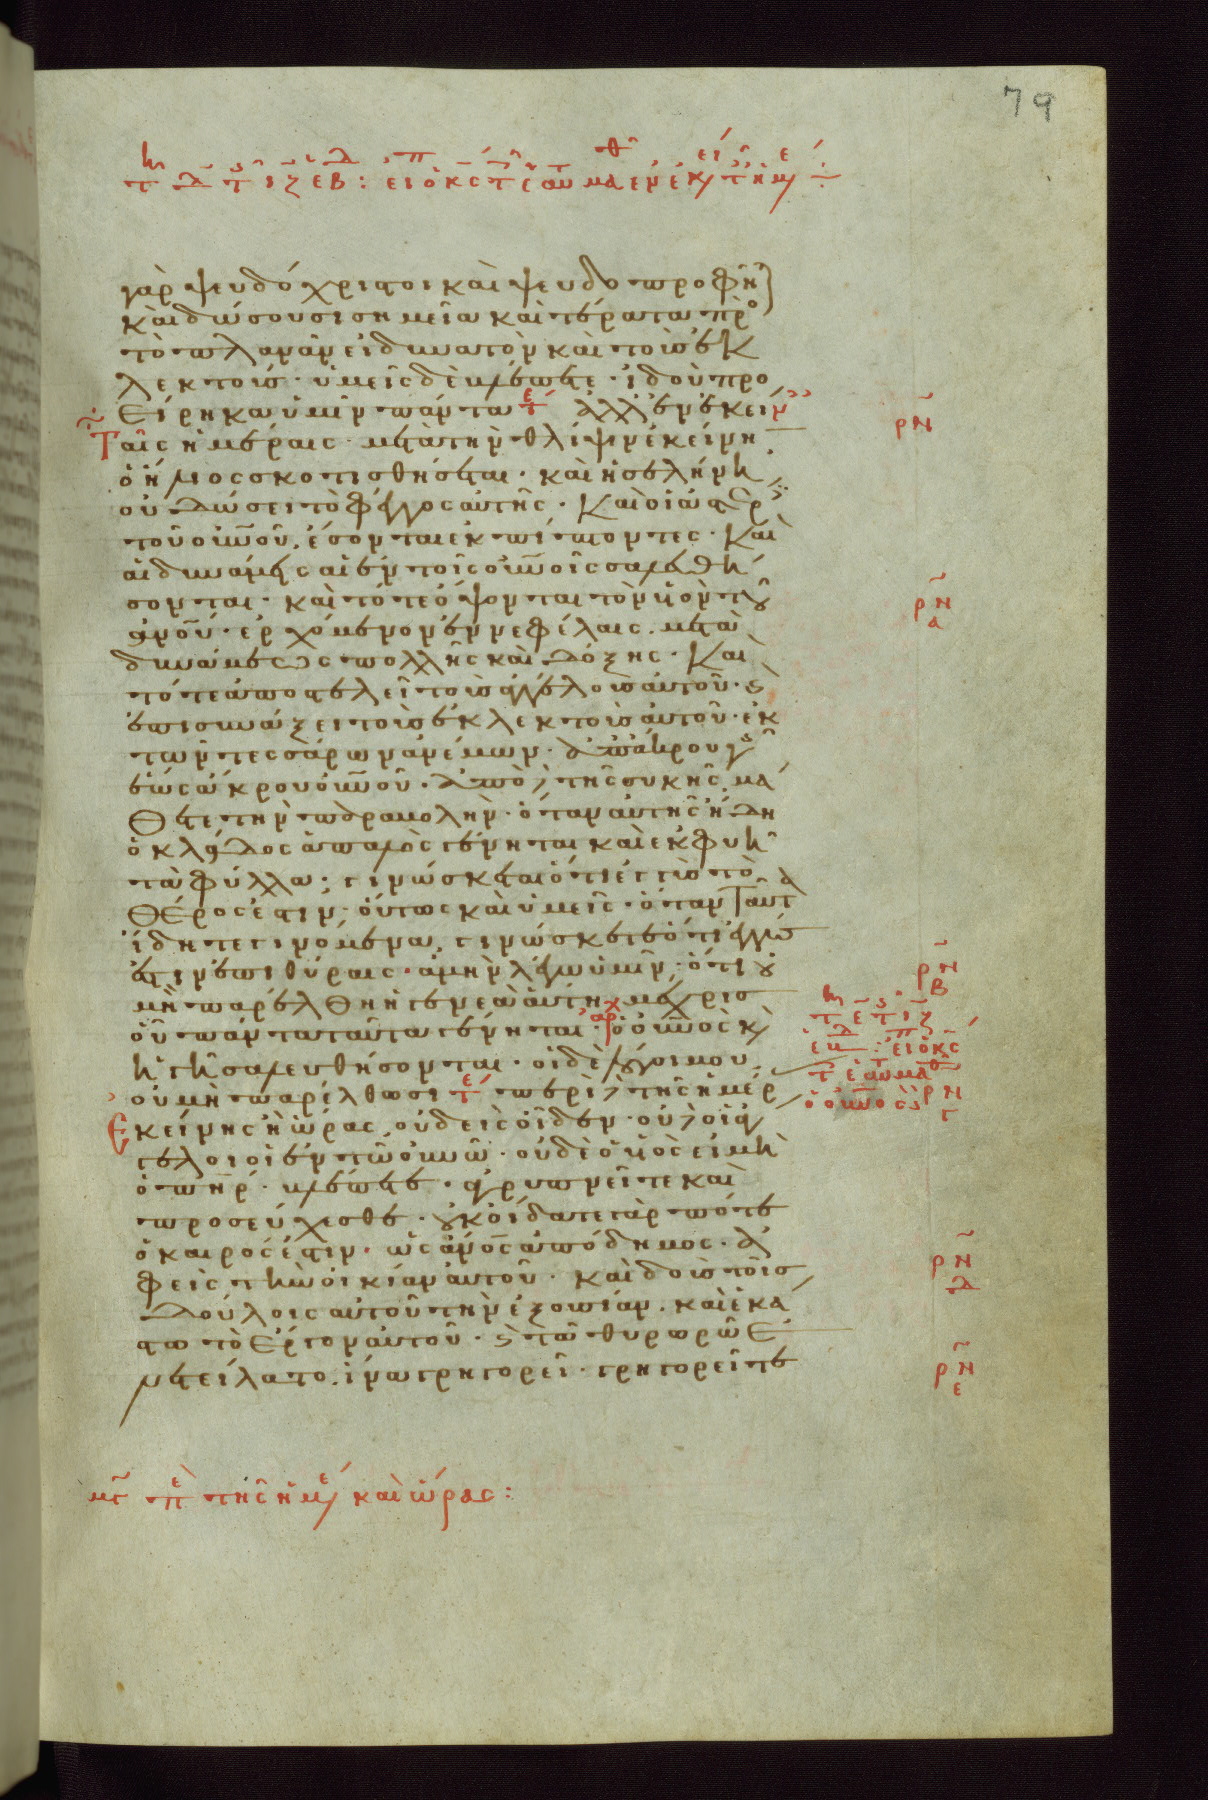 79
γὰρ ψευδόχριστοι καὶ ψευδοπροφῆ
καὶ δώσουσι σημεῖα καὶ τέρατα πρὸ
τὸ πλανᾶν εἰ δυνατὸν καὶ τοὺσ ἐκ
λεκτούσ · ὑμεῖς δὲ βλέπετε · ἰδοὺ προ
είρηκα ὑμῖν πάντα ἀλλ ἐν ἐκείν
Ταῖς ἡμέραις · μετὰ τὴν θλίψιν ἐκείνη
ὁ ἥλιος σκοτισθήσεται · καὶ ἡ σελήνη
οὐ δώσει τὸ φέγγος αὐτῆς · Καὶ οἱ ἀστέρ
τοῦ οὐνοῦ, ἔσονται ἐκπίπτοντες · Καὶ
αἱ δυνάμεις αἱ ἐν τοῖς οὐνοῖς σαλευθή
σονται · καὶ τότε ὄψονται τὸν υἱὸν τοῦ
ἀνοῦ · ἐρχόμενον ἐν νεφέλαις · μετὰ
δυνάμεως πολλῆς καὶ δόξης · Καὶ
τότε ἀποστελεῖ τοὺσ ἀγγέλουσ αὐτοῦ · ϗ
ἐπισυνάξει τοὺσ ἐκλεκτοὺσ αὐτοῦ · ἐκ
τῶν τεσσάρων ἀνέμων · ἀπ ἄκρου γῆ
ἕως ἄκρου οὐνοῦ · Ἀπὸ δὲ τῆς συκῆς μά
θετε τὴν παραβολήν · ὅταν αὐτῆς ἤδη
ὁ κλάδος ἁπαλὸς γένηται καὶ ἐκφυῆ
τὰ φύλλα · γινώσκεται ὅτι ἐγγὺσ τὸ
θέρος ἐστιν · οὕτως καὶ ὑμεῖς · ὅταν ταῦτα
ἴδητε γινόμενα, γινώσκετε ὅτι ἐγγύσ
ἐστιν ἐπὶ θύραις · ἀμὴν λέγω ὑμῖν · ὅτι οὐ
μὴ παρέλθη ἡ γενεὰ αὕτη μέχρισ
οὗ πάντα ταῦτα γένηται · ὁ οὐνὸς κ
ἡ γῆ παρελεύσονται · οἱ δὲ λόγοι μου
οὐ μὴ παρέλθωσι περὶ δὲ τῆς ἡμέρ
Ἐκείνης ἢ ὥρας, οὐδεὶς οἶδεν · οὐδὲ οἱ ἄγ
γελοι οἱ ἐν τῶ οὐνῶ · οὐδὲ ὁ υἱὸς εἰ μὴ
ὁ πηρ · βλέπετε · ἀγρυπνεῖτε καὶ
προσεύχεσθε · οὐκ οἴδατε γὰρ πότε
ὁ καιρός ἐστιν · ὡς ἀνος ἀπόδημος · ἀ
φεὶς τὴν οἰκίαν αὐτοῦ · καὶ δοὺσ τοῖσ
δούλοις αὐτοῦ τὴν ἐξουσίαν · καὶ ἑκά
στω τὸ ἔργον αὐτοῦ · ϗ τῶ θυρωρῶ ἐ
νετείλατο, ἵνα γρηγορεῖ · γρηγορεῖτε
ρν
ρν
α
ρν
β
ρν
γ
ρν
δ
ρν
ε
τῆς ἡμ καὶ ὥρας :